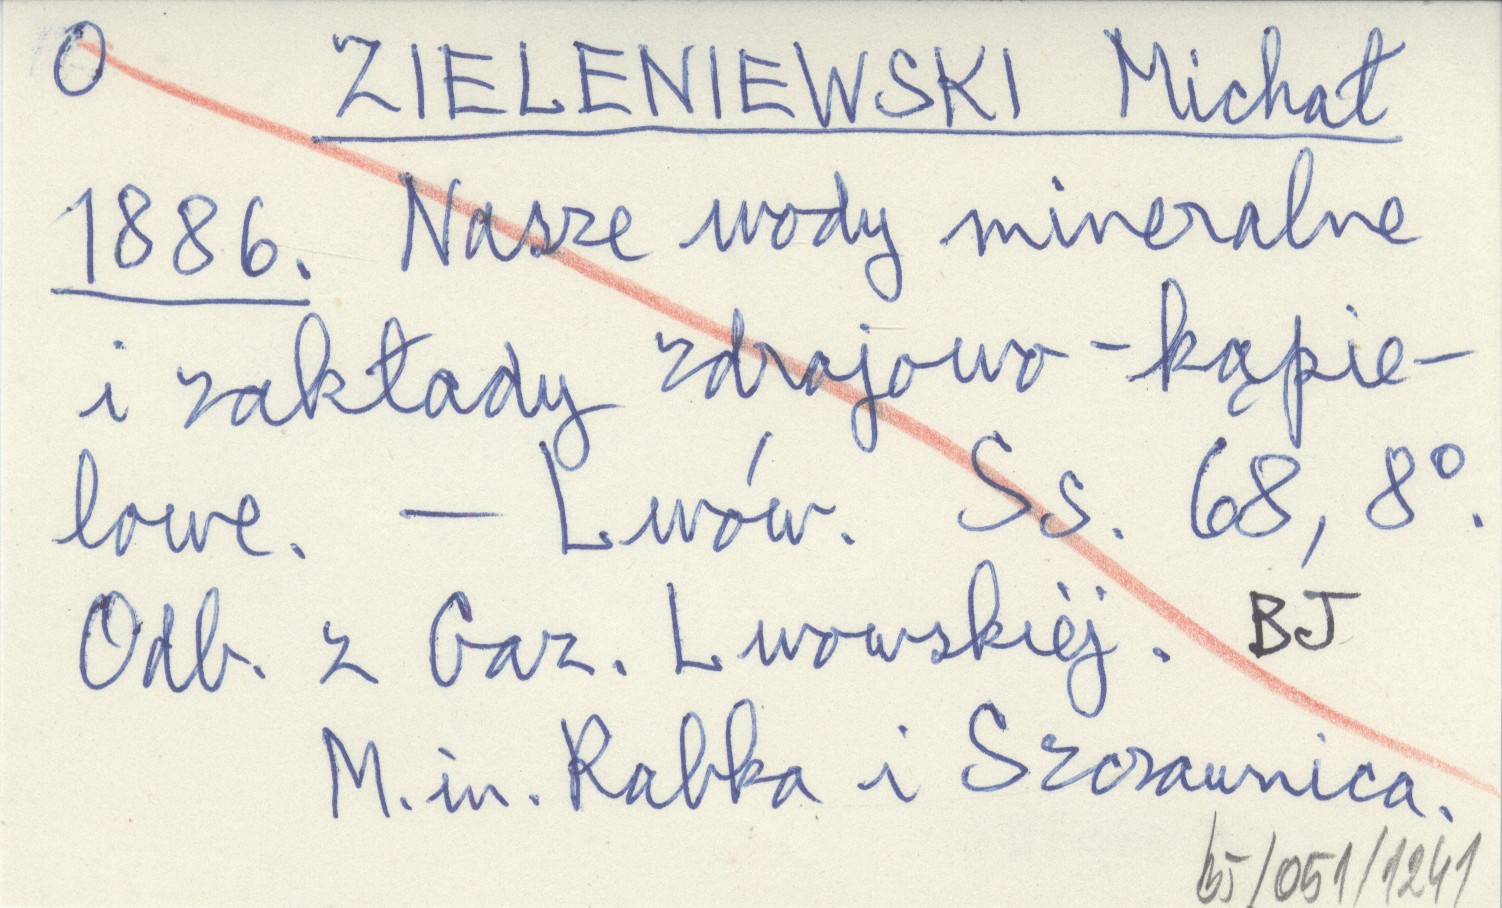 O ZIELENIEWSKI Michał
1886. Nasze wody mineralne
i zakłady zdrojowo-kąpie-
lowe. — Lwów. Ss. 68, 8°.
Odb. z Gaz. Lwowskiéj. BJ
M.in. Rabka i Szczawnica.
BJ/051/1241